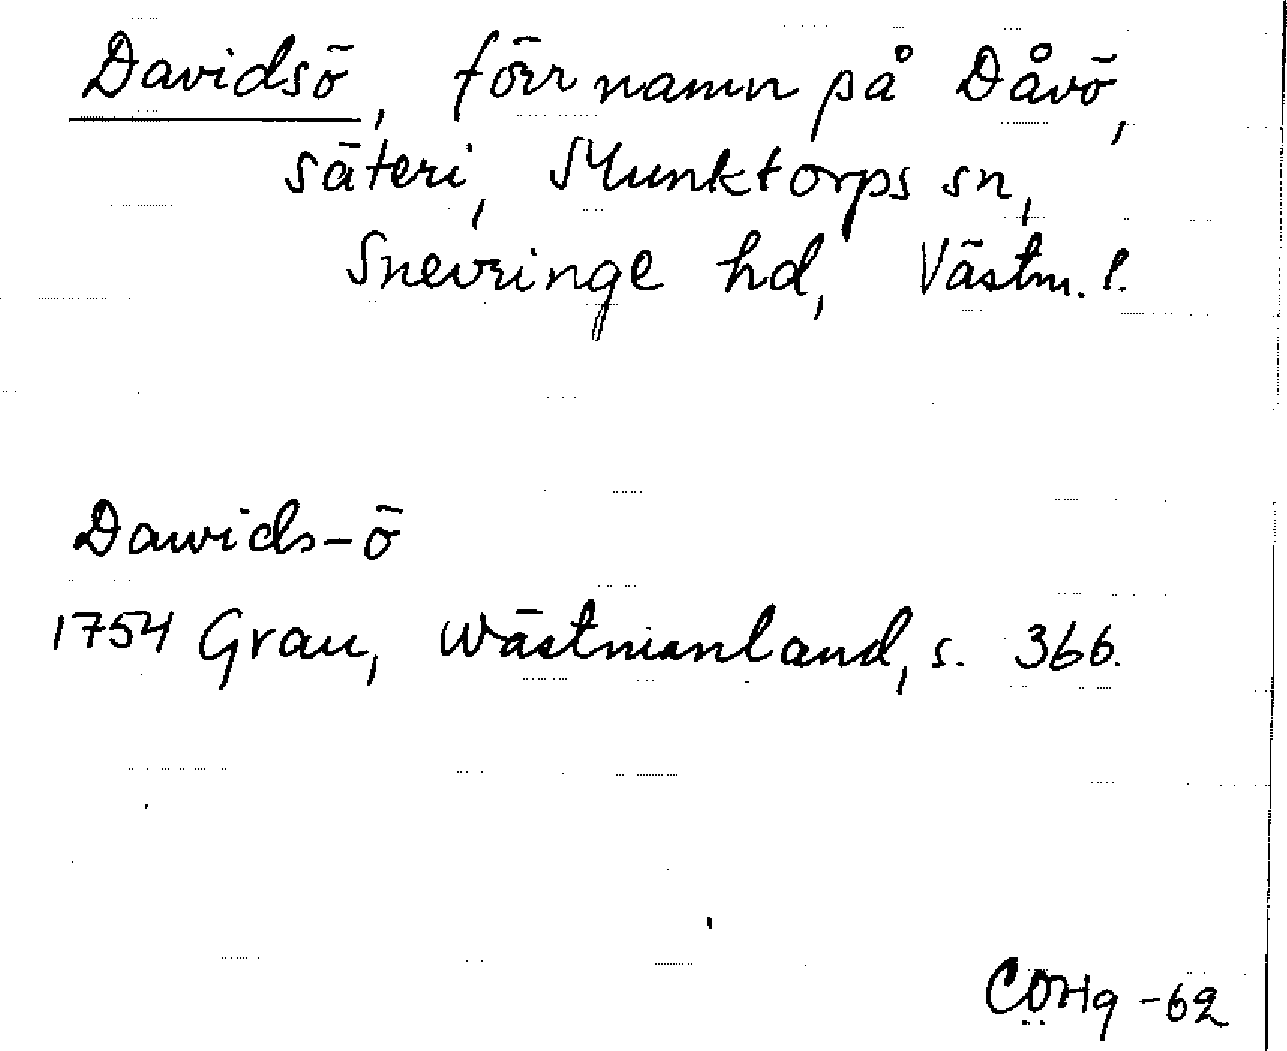 Davidsö, förr namn på Dåvö,
säteri, Munktorps sn,
Snevringe hd, Västm. l.
Dawids-ö
1754 Grau, Wästmanland, s. 366.
-62